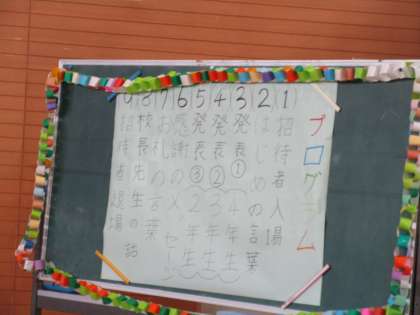 プログラム
(1)招待者入場
(2)はじめの言葉
(3)発表①(4年生)
(4)発表②(3年生)
(5)発表③(2年生)
(6)感謝のメッセージ
(7)お礼の言葉
(8)校長先生の話
(9)招待者退場